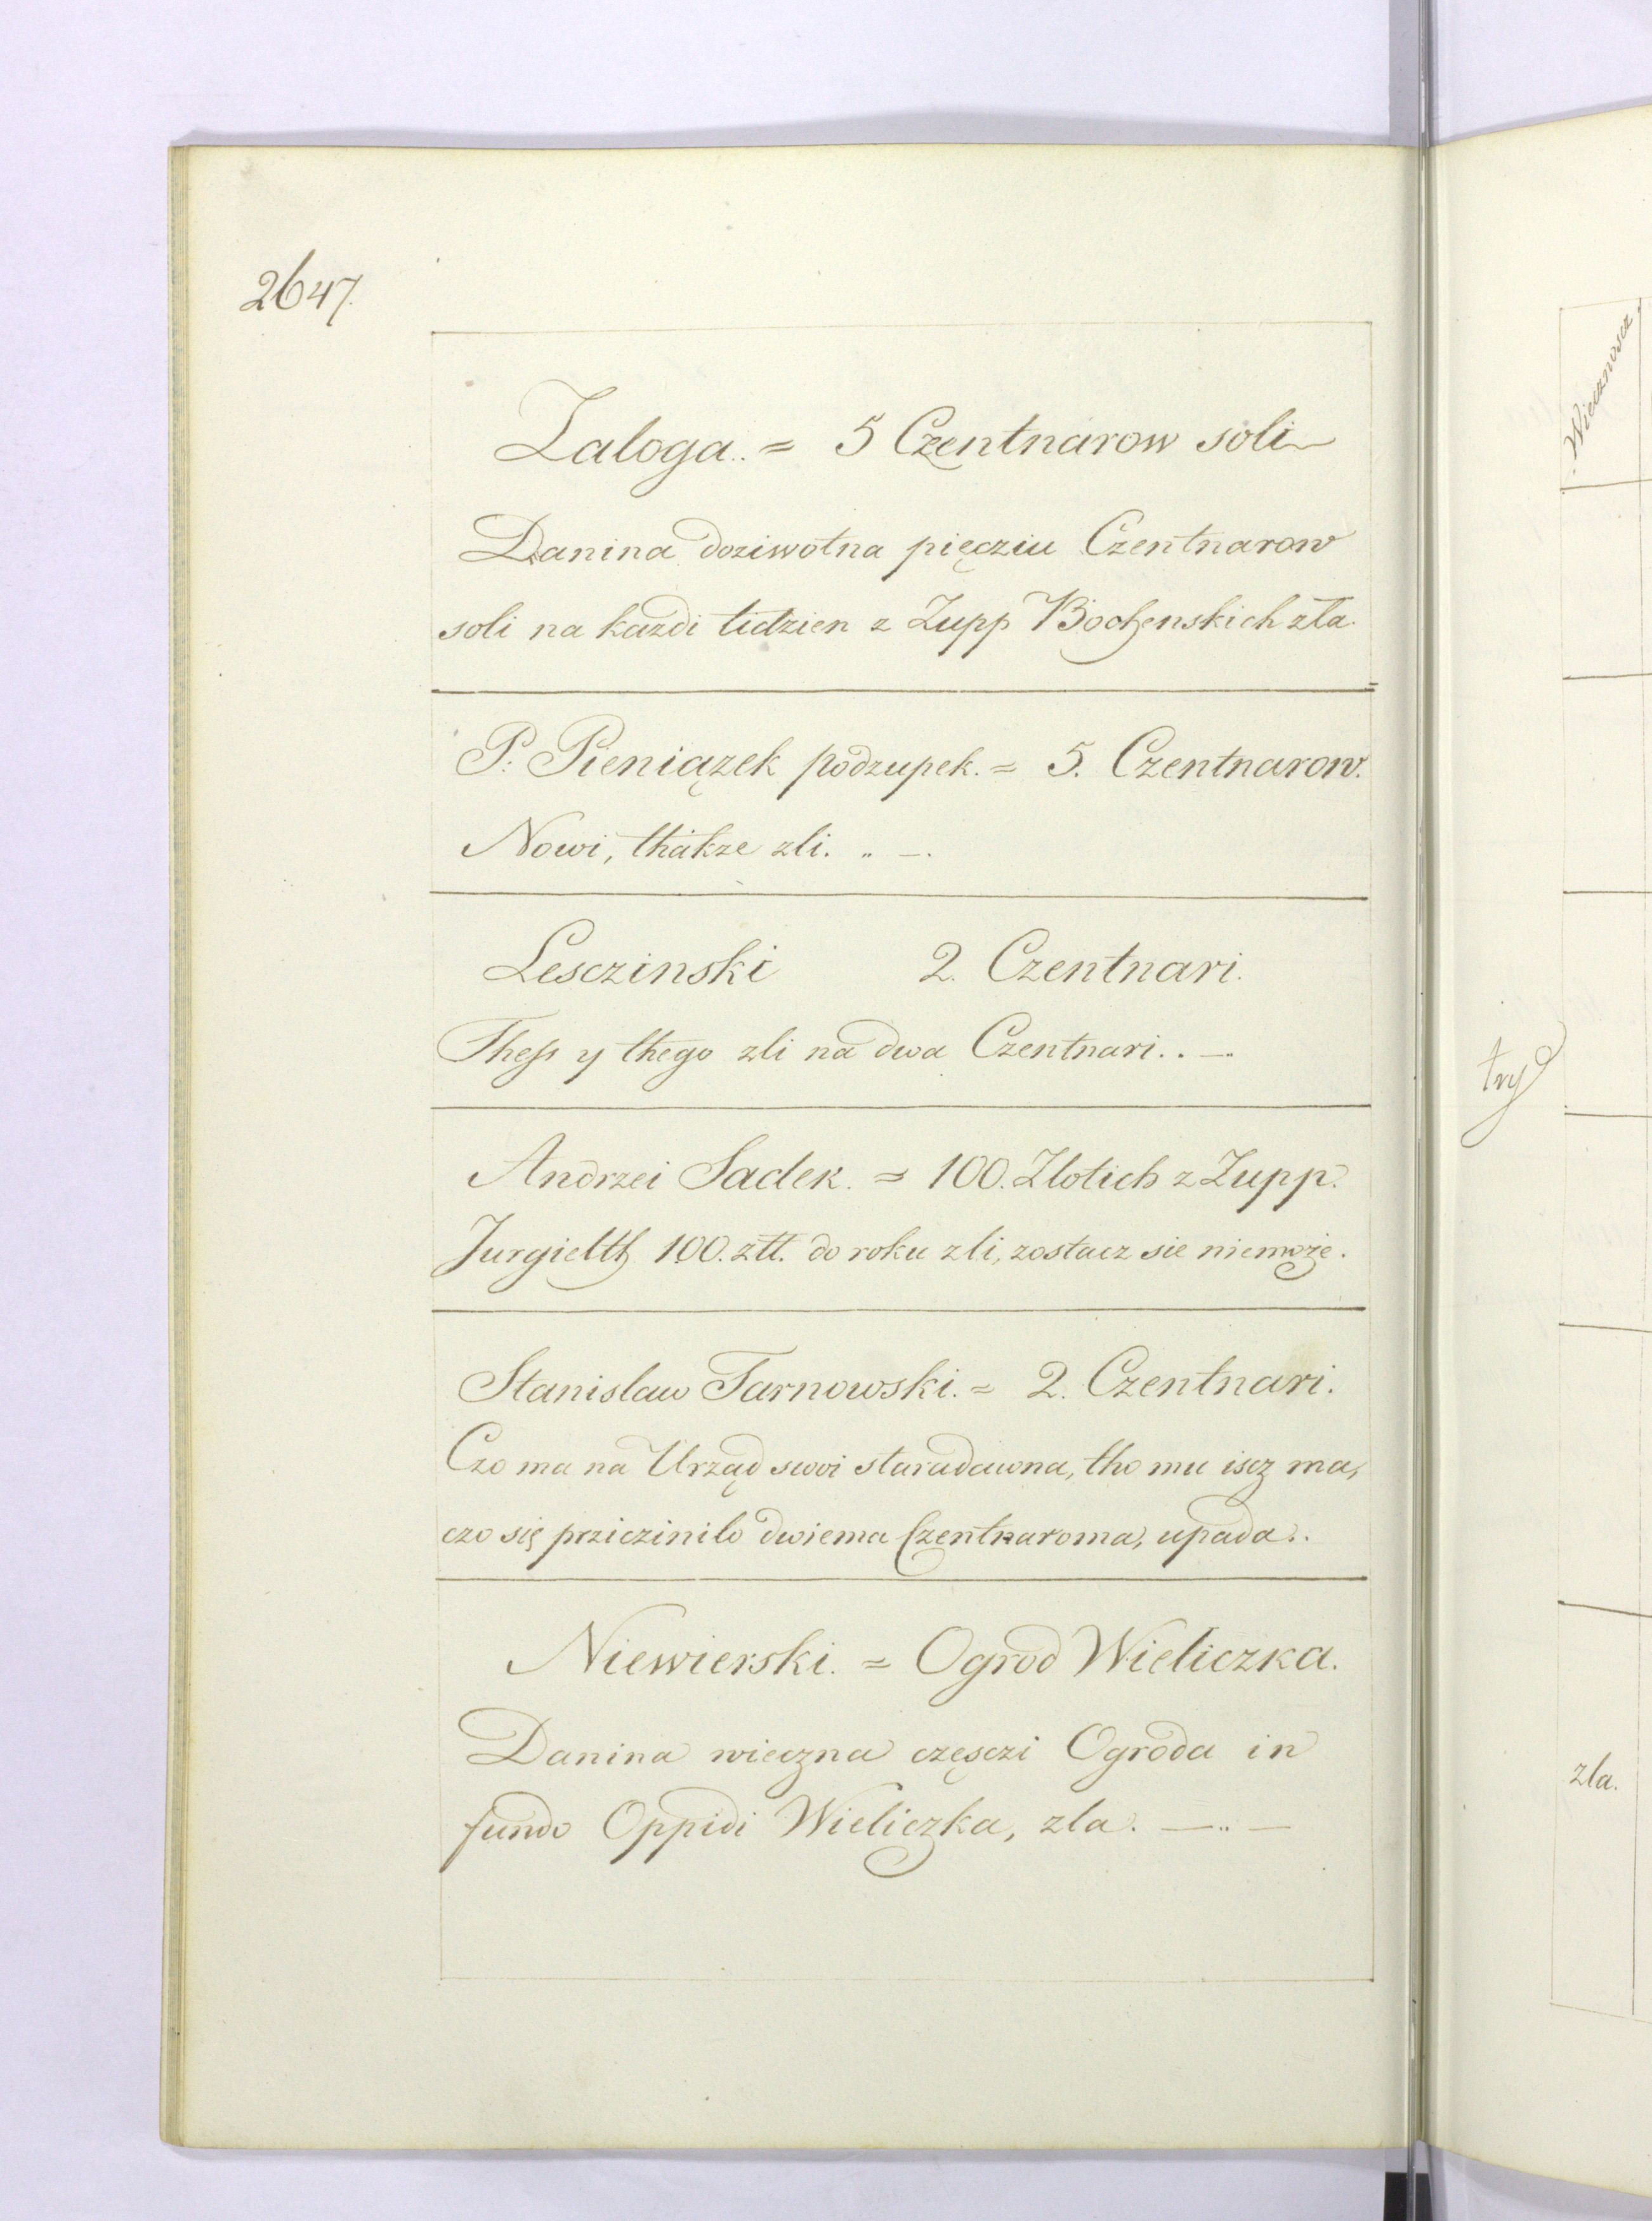 2647.
Zaloga. = 5 Czentnarow soli
Danina doziwotna pięcziu Czentnarow
soli na kazdi tidzien z Zupp Bochenskich zla.
P: Pieniązek podzupek. = 5. Czentnarow.
Nowi, thakze zli. „ —.
Lesczinski 2. Czentnari.
Thess y thego zli na dwa Czentnari. . —.
Andrzei Sadek. = 100. Zlotich z Zupp.
Jurgielth 100. złł. do roku zli, zostacz sie niemoże.
Stanislaw Tarnowski. = 2. Czentnari.
Czo ma na Urząd swoi staradawna, tho mu iscz ma,
czo się prziczinilo dwiema Czentnaroma, upada..
Niewierski. = Ogrod Wieliczka.
Danina wieczna częsczi Ogroda in
fundo Oppidi Wieliczka, zla. — .. —
Wiecznoscz
try
zla.